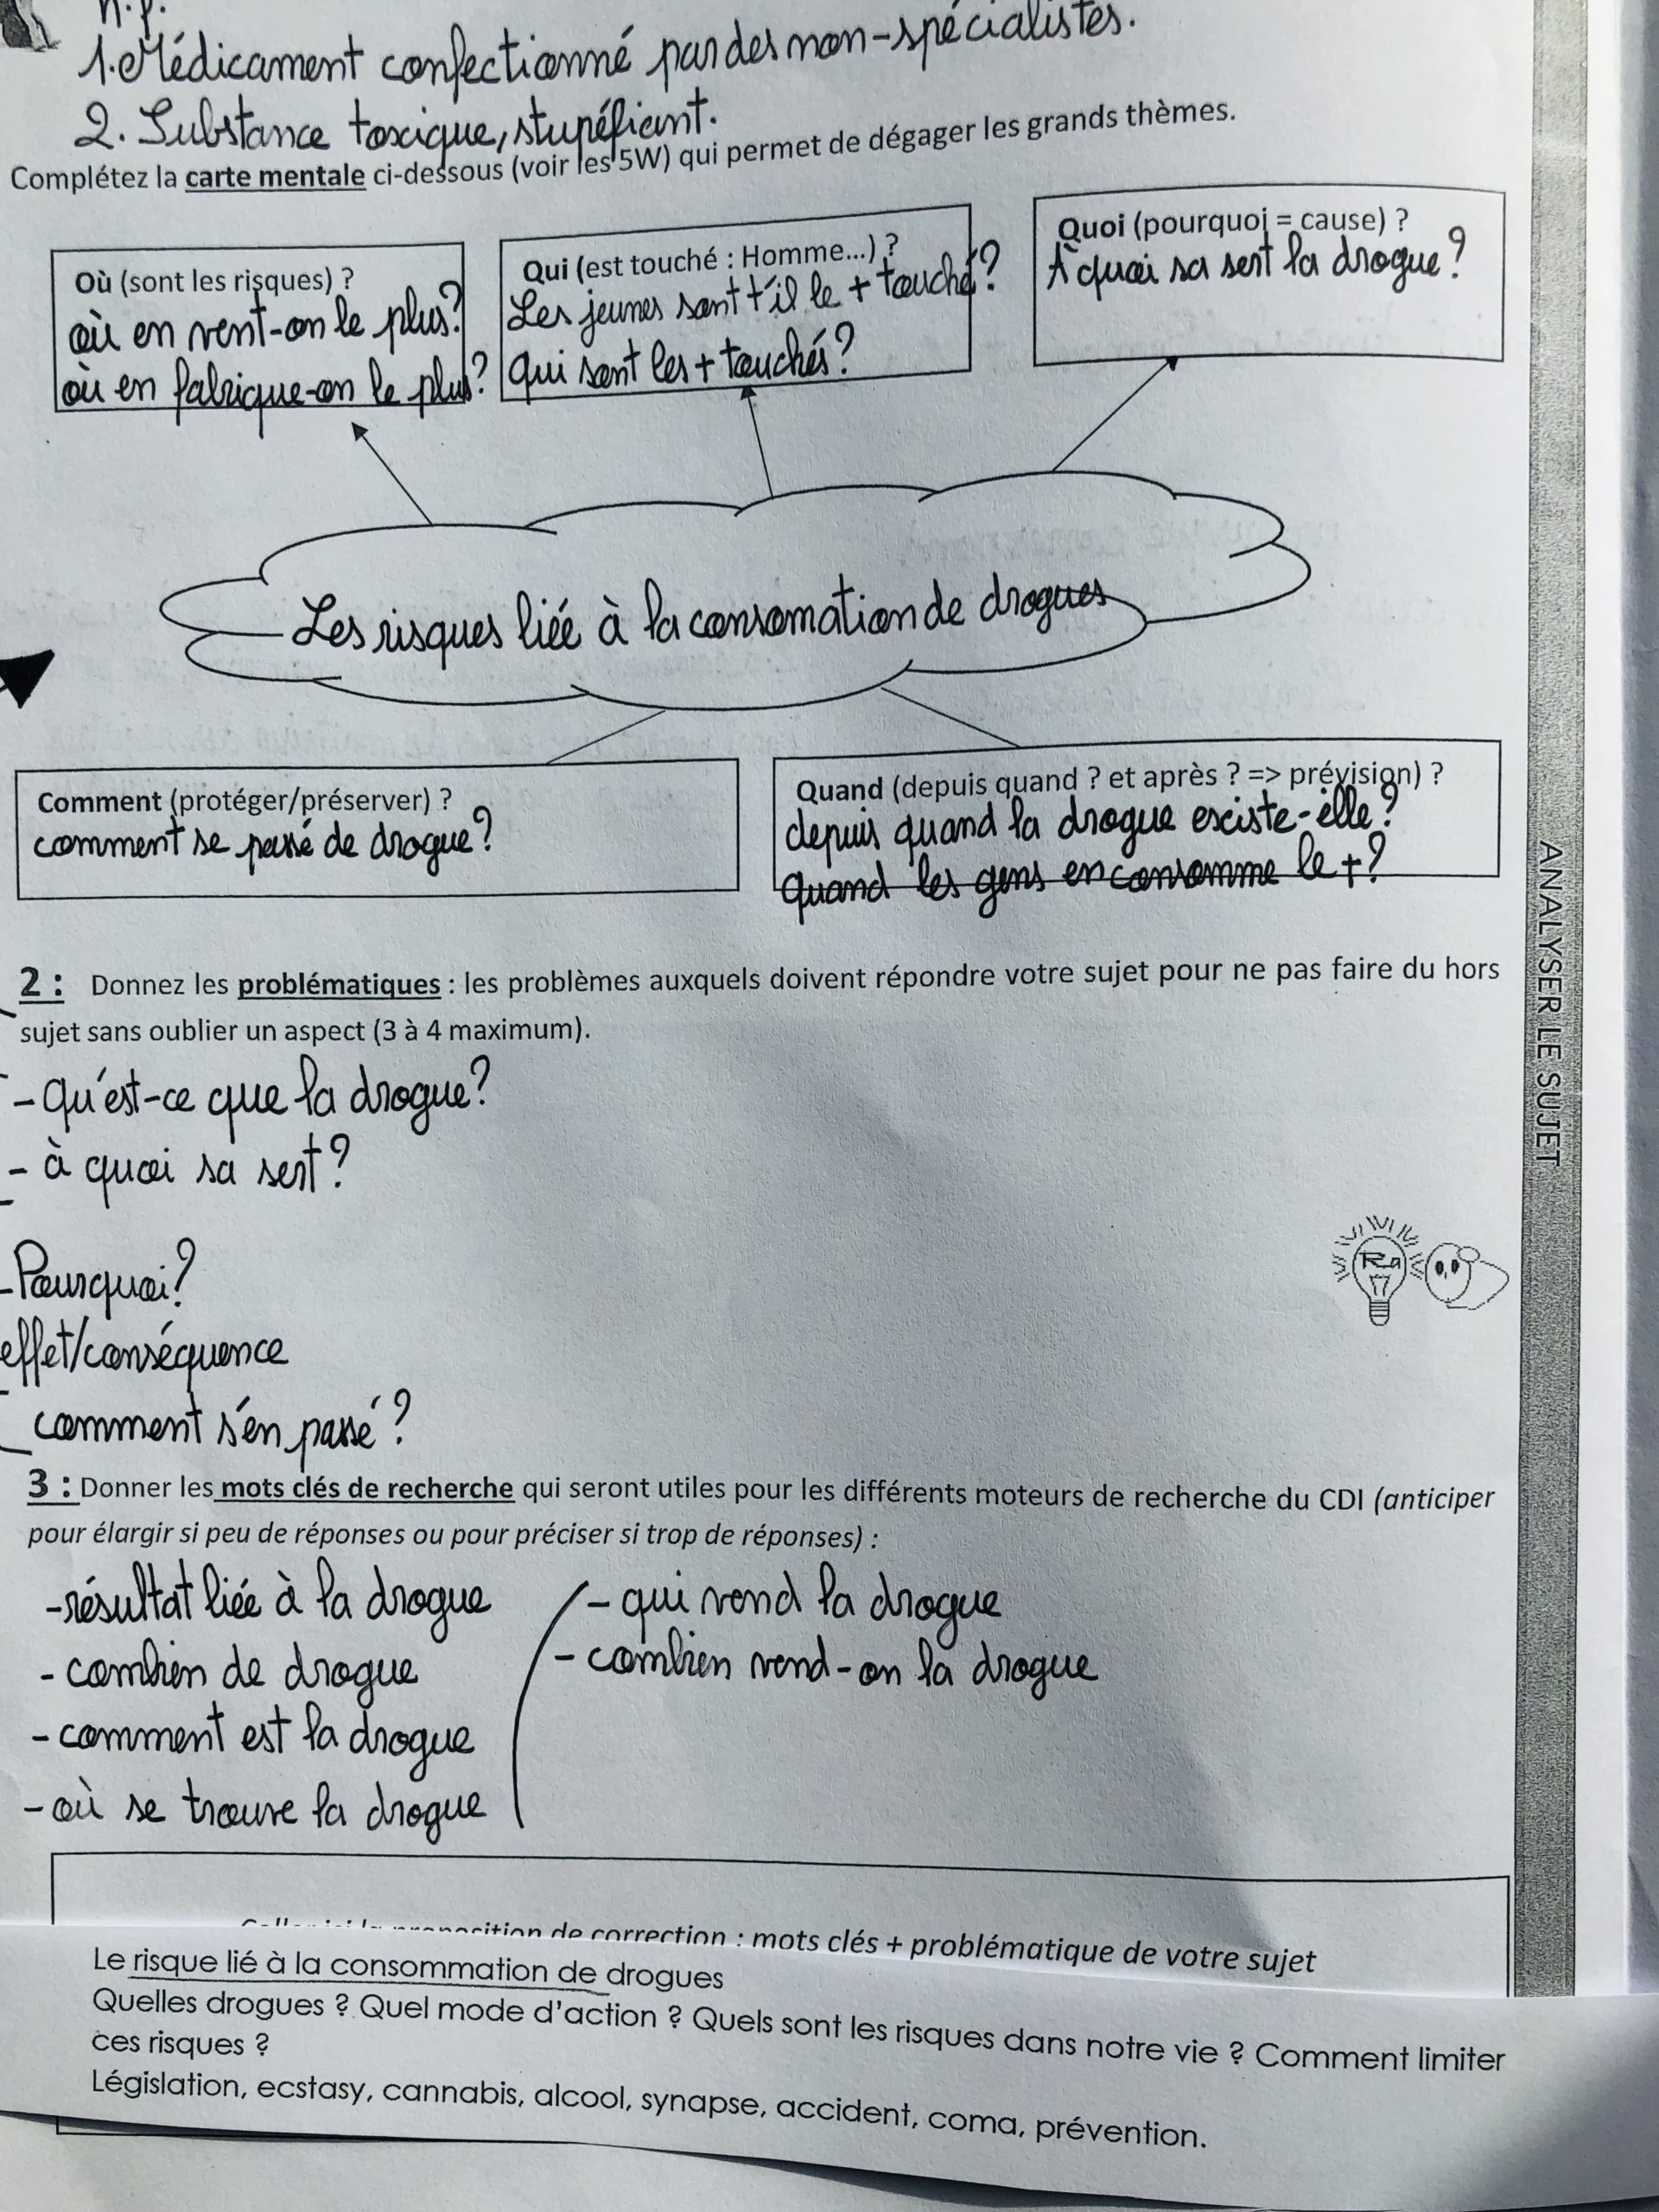 n.f.
1. Médicament confectionné par des non-spécialistes.
2. Substance toxique, stupéfiant.
Complétez la carte mentale ci-dessous (voir les 5W) qui permet de dégager les grands thèmes.
Où (sont les risques) ?
où en vent-on le plus?
où en fabrique-on le plus?
Qui (est touché : Homme...) ?
Les jeunes sont t'il le + touché?
qui sont les + touchés?
Quoi (pourquoi = cause) ?
À quoi sa sert la drogue?
Les risques liée à la consomation de drogues
Comment (protéger/préserver) ?
comment se passé de drogue?
Quand (depuis quand ? et après ? => prévision) ?
depuis quand la drogue exciste-elle?
quand les gens en consomme le +?
2 : Donnez les problématiques : les problèmes auxquels doivent répondre votre sujet pour ne pas faire du hors
sujet sans oublier un aspect (3 à 4 maximum).
- Qu'est-ce que la drogue?
- à quoi sa sert?
- Pourquoi?
effet/conséquence
comment s'en passé?
3 : Donner les mots clés de recherche qui seront utiles pour les différents moteurs de recherche du CDI (anticiper
pour élargir si peu de réponses ou pour préciser si trop de réponses) :
- résultat liée à la drogue
- combien de drogue
- comment est la drogue
- où se trouve la drogue
- qui vend la drogue
- combien vend-on la drogue
ANALYSER LE SUJET
proposition de correction : mots clés + problématique de votre sujet
Le risque lié à la consommation de drogues
Quelles drogues ? Quel mode d'action ? Quels sont les risques dans notre vie ? Comment limiter
ces risques ?
Législation, ecstasy, cannabis, alcool, synapse, accident, coma, prévention.